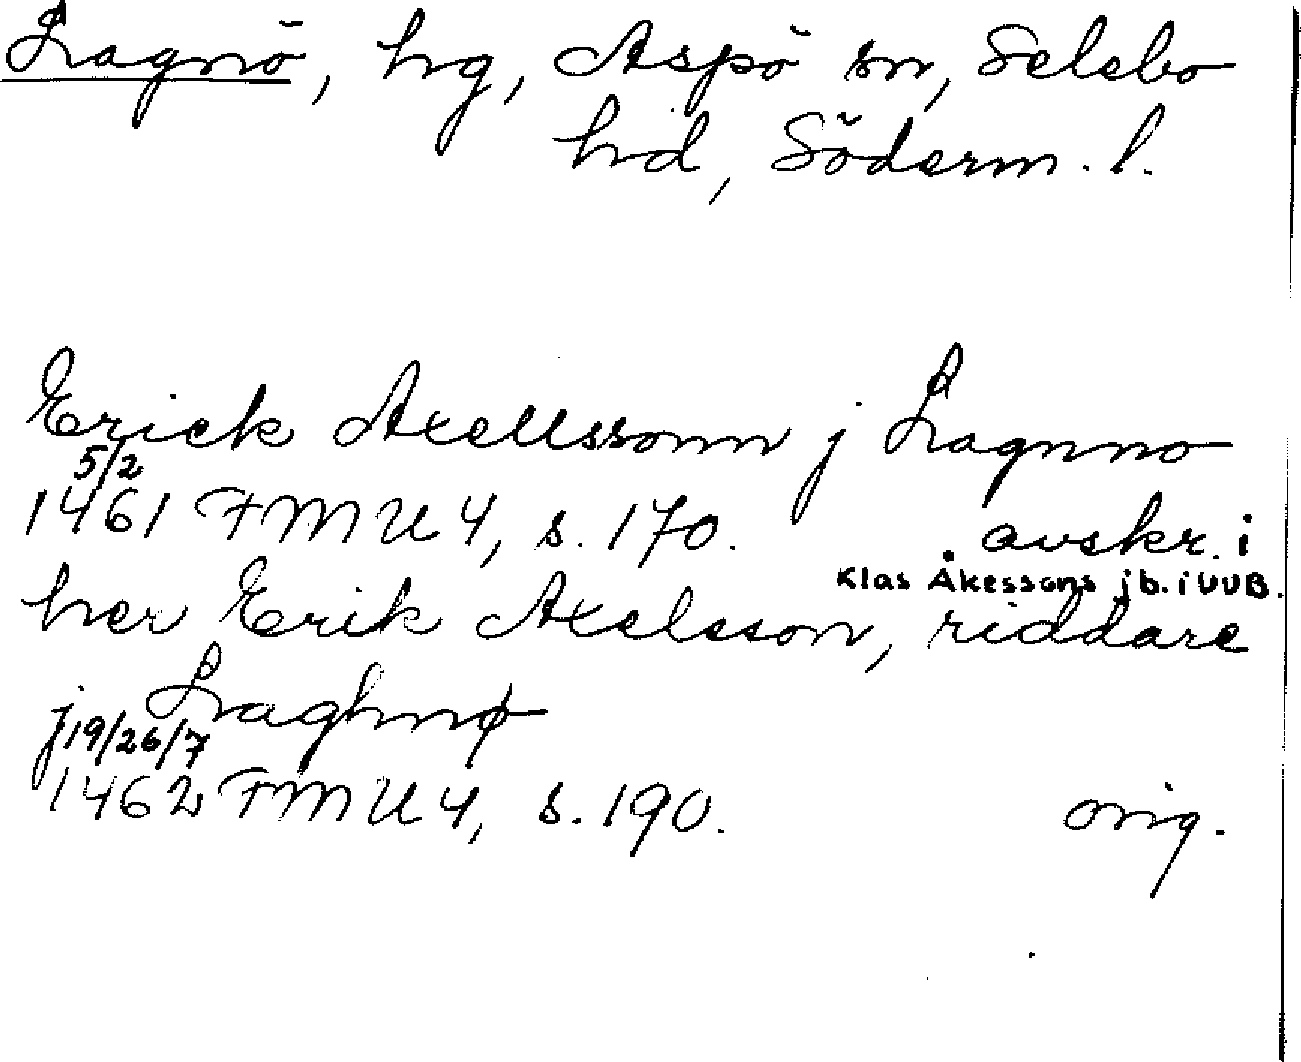 Lagnö, hg, Aspö sn, Selebo
hd, Söderm. l.
Erick Axellssonn j Lagnno
5/2
1461 FMU 4, s. 170. avskr. i
Klas Åkessons jb. i UUB.
her Erik Axelsson, riddare
j Laghnø
19/26/7
1462 FMU 4, s. 190. orig.